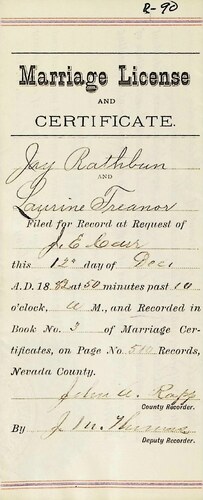 R-90
Marriage License
AND
CERTIFICATE.
Jay Rathbun
AND
Laurine Treanor
Filed for Record at Request of
J. E. Carr
this 12" day of Dec.
A.D. 1882 at 50 minutes past 10
o'clock, a M., and Recorded in
Book No. 3 of Marriage Cer-
tificates, on Page No 510 Records,
Nevada County.
John A. Rapp
County Recorder.
By J. M.
Deputy Recorder.